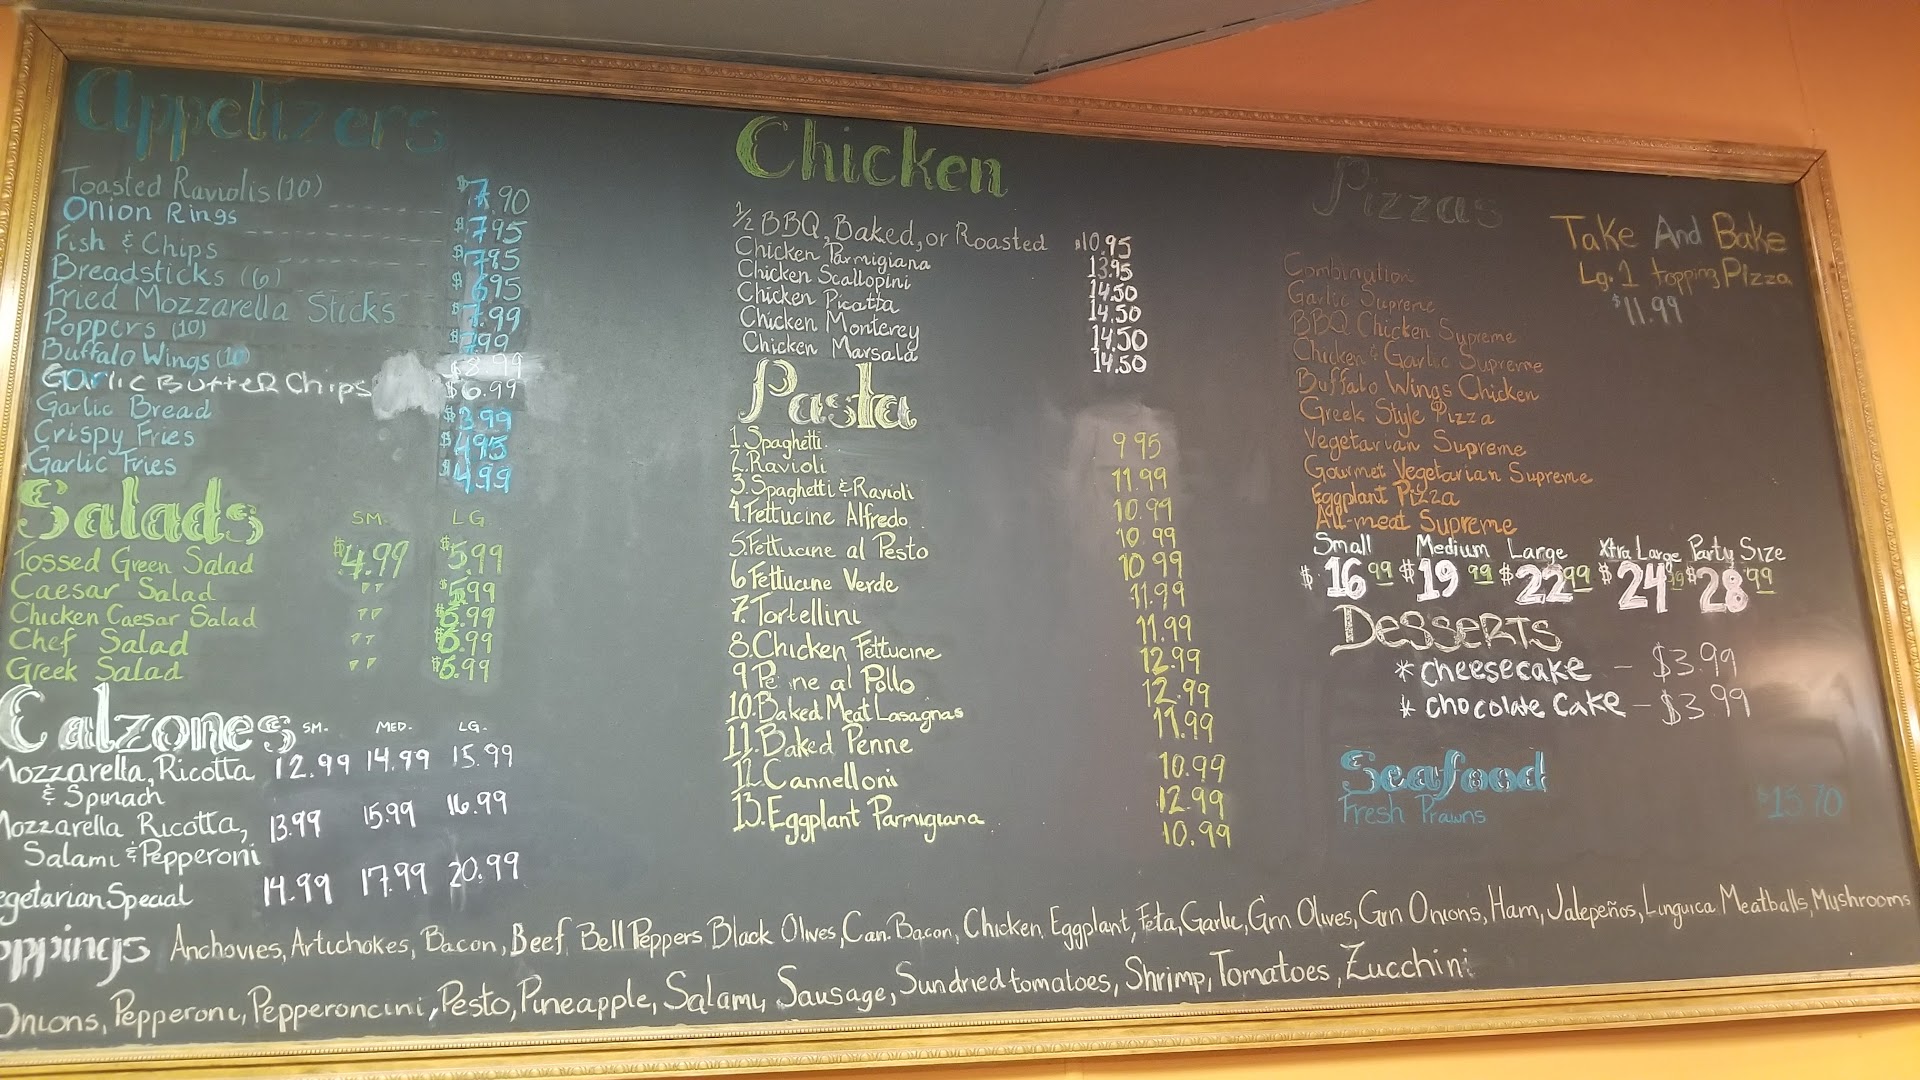 Appetizers
Toasted Raviolis (10) $7.90
Onion Rings $7.95
Fish & Chips $7.95
Breadsticks (6) $6.95
Fried Mozzarella Sticks $7.99
Poppers (10) $7.99
Buffalo Wings (10) $8.99
Garlic Butter Chips $6.99
Garlic Bread $3.99
Crispy Fries $4.95
Garlic Fries $4.99
Salads SM. LG.
Tossed Green Salad $4.99 $5.99
Caesar Salad " $5.99
Chicken Caesar Salad " $6.99
Chef Salad " $6.99
Greek Salad " $5.99
Calzones SM. MED. LG.
Mozzarella, Ricotta 12.99 14.99 15.99
& Spinach
Mozzarella Ricotta, 13.99 15.99 16.99
Salami & Pepperoni
egetarian Special 14.99 17.99 20.99
Chicken
1/2 BBQ, Baked, or Roasted $10.95
Chicken Parmigiana 13.95
Chicken Scallopini 14.50
Chicken Picatta 14.50
Chicken Monterey 14.50
Chicken Marsala 14.50
Pasta
1. Spaghetti 9.95
2. Ravioli 11.99
3. Spaghetti & Ravioli 10.99
4. Fettucine Alfredo 10.99
5. Fettucine al Pesto 10.99
6 Fettucine Verde 11.99
7. Tortellini 11.99
8. Chicken Fettucine 12.99
9 Pe ne al Pollo 12.99
10. Baked Meat Lasagnas 11.99
11. Baked Penne 10.99
12. Cannelloni 12.99
13. Eggplant Parmigiana 10.99
Pizzas
Combination
Garlic Supreme
BBQ Chicken Supreme
Chicken & Garlic Supreme
Buffalo Wings Chicken
Greek Style Pizza
Vegetarian Supreme
Gourmet Vegetarian Supreme
Eggplant Pizza
All-meat Supreme
Take And Bake
Lg. 1 topping Pizza
$11.99
Small Medium Large Xtra Large Party Size
$16.99 $19.99 $22.99 $24.99 $28.99
Desserts
* Cheesecake - $3.99
* Chocolate Cake - $3.99
Seafood
Fresh Prawns $15.70
oppings Anchovies, Artichokes, Bacon, Beef, Bell Peppers, Black Olives, Can. Bacon, Chicken, Eggplant, Feta, Garlic, Grn Olives, Grn Onions, Ham, Jalepeños, Linguica Meatballs, Mushrooms
Onions, Pepperoni, Pepperoncini, Pesto, Pineapple, Salami, Sausage, Sundried tomatoes, Shrimp, Tomatoes, Zucchini